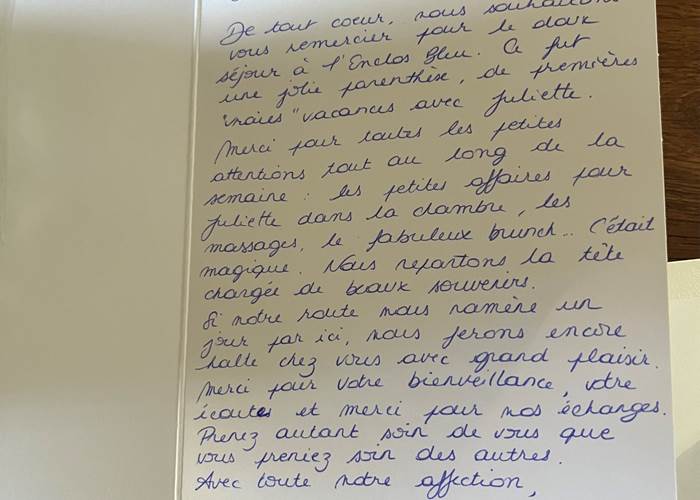 De tout coeur, nous souhaitons
vous remercier pour le doux
séjour à l'Enclos Bleu. Ce fut
une jolie parenthèse, de premières
"vraies" vacances avec Juliette.
Merci pour toutes les petites
attentions tout au long de la
semaine : les petites affaires pour
Juliette dans la chambre, les
massages, le fabuleux brunch... C'était
magique. Nous repartons la tête
chargée de beaux souvenirs.
Si notre route nous ramène un
jour par ici, nous ferons encore
halte chez vous avec grand plaisir.
Merci pour votre bienveillance, votre
écoutes et merci pour nos échanges.
Prenez autant soin de vous que
vous preniez soin des autres.
Avec toute notre affection,